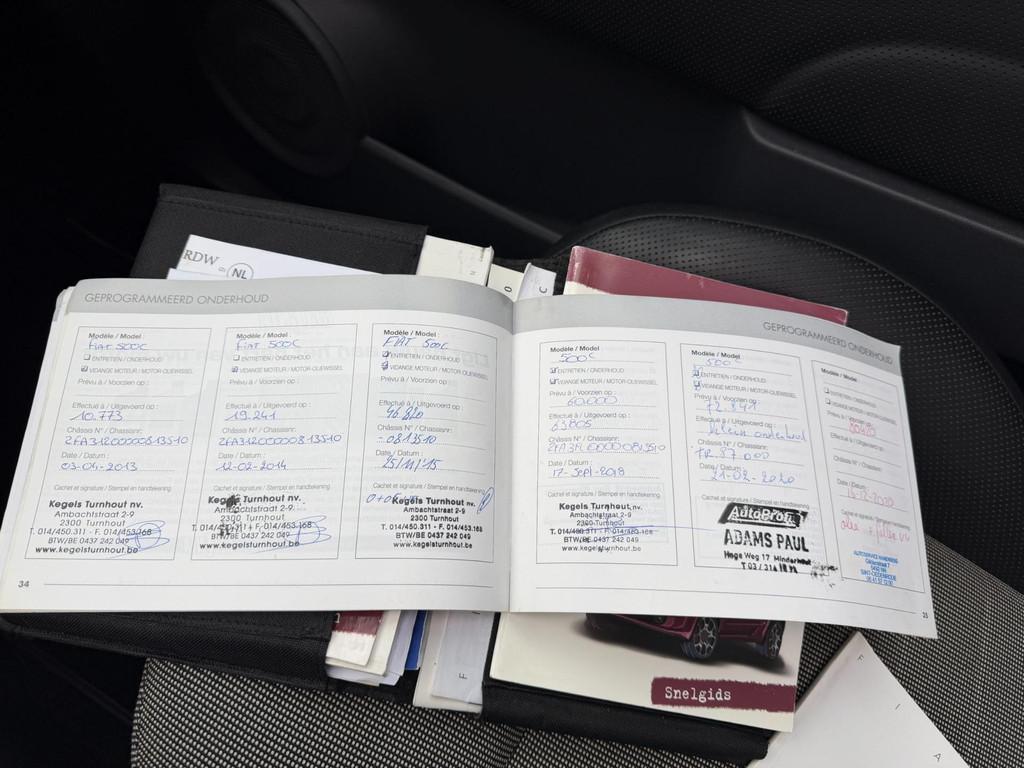 RDW
NL
GEPROGRAMMEERD ONDERHOUD
Modèle / Model :
Fiat 500C
ENTRETIEN / ONDERHOUD
VIDANGE MOTEUR / MOTOR-OLIEWISSEL
Prévu à / Voorzien op :
Effectué à / Uitgevoerd op :
10.773
Châssis N° / Chassisnr:
ZFA31200000813510
Date / Datum :
03-04-2013
Cachet et signature / Stempel en handtekening
Kegels Turnhout nv.
Ambachtstraat 2-9
2300 Turnhout
T. 014/450.311 - F. 014/453.168
BTW/BE 0437 242 049
www.kegelsturnhout.be
34
Modèle / Model :
Fiat 500C
ENTRETIEN / ONDERHOUD
VIDANGE MOTEUR / MOTOR-OLIEWISSEL
Prévu à / Voorzien op :
Effectué à / Uitgevoerd op :
19.241
Châssis N° / Chassisnr:
ZFA31200000813510
Date / Datum :
12-02-2014
Cachet et signature / Stempel en handtekening
Kegels Turnhout nv.
Ambachtstraat 2-9
2300 Turnhout
T. 014/450.311 - F. 014/453.168
BTW/BE 0437 242 049
www.kegelsturnhout.be
Modèle / Model :
FIAT 500C
ENTRETIEN / ONDERHOUD
VIDANGE MOTEUR / MOTOR-OLIEWISSEL
Prévu à / Voorzien op :
Effectué à / Uitgevoerd op :
46.820
Châssis N° / Chassisnr:
0813510
Date / Datum :
25/11/'15
Cachet et signature / Stempel en handtekening
Kegels Turnhout nv.
Ambachtstraat 2-9
2300 Turnhout
T. 014/450.311 - F. 014/453.168
BTW/BE 0437 242 049
www.kegelsturnhout.be
GEPROGRAMMEERD ONDERHOUD
Modèle / Model :
500C
ENTRETIEN / ONDERHOUD
VIDANGE MOTEUR / MOTOR-OLIEWISSEL
Prévu à / Voorzien op :
60.000
Effectué à / Uitgevoerd op :
63805
Châssis N° / Chassisnr:
Date / Datum :
17-Sept-2018
Cachet et signature / Stempel en handtekening
Kegels Turnhout nv.
Ambachtstraat 2-9
2300 Turnhout
T. 014/450.311 - F. 014/453.168
BTW/BE 0437 242 049
www.kegelsturnhout.be
Modèle / Model :
500C
ENTRETIEN / ONDERHOUD
VIDANGE MOTEUR / MOTOR-OLIEWISSEL
Prévu à / Voorzien op :
72.841
Effectué à / Uitgevoerd op :
klein onderhoud
Châssis N° / Chassisnr:
87.000
Date / Datum :
21-02-2020
Cachet et signature / Stempel en handtekening
AutoProfi
ADAMS PAUL
Hoge Weg 17 Minderhout
Modèle / Model :
ENTRETIEN / ONDERHOUD
VIDANGE MOTEUR / MOTOR-OLIEWISSEL
Prévu à / Voorzien op :
Effectué à / Uitgevoerd op :
Châssis N° / Chassisnr:
Date / Datum :
16-12-2020
Cachet et signature / Stempel en handtekening
SINT-OEDENRODE
35
Snelgids
F
I
A